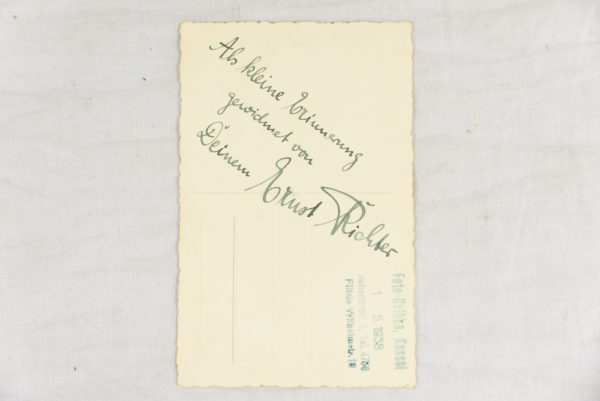 Als kleine Erinnerung
gewidmet von
Deinem Ernst Richter
Foto-Bethke, Kassel
5. 1938
Tel. 4750
Filiale Wilhelmstr.